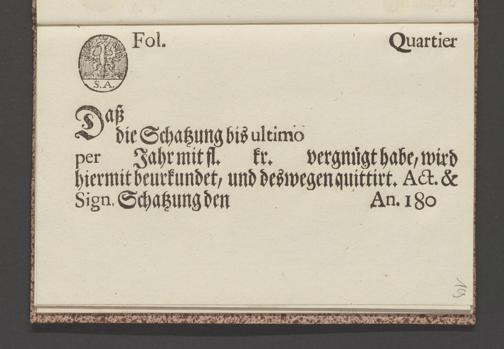 Fol. Quartier
S.A.
Daß
die Schatzung bis ultimo
per Jahr mit fl. kr. vergnügt habe, wird
hiermit beurkundet, und deswegen quittirt. Act. &
Sign. Schatzung den An. 180
19